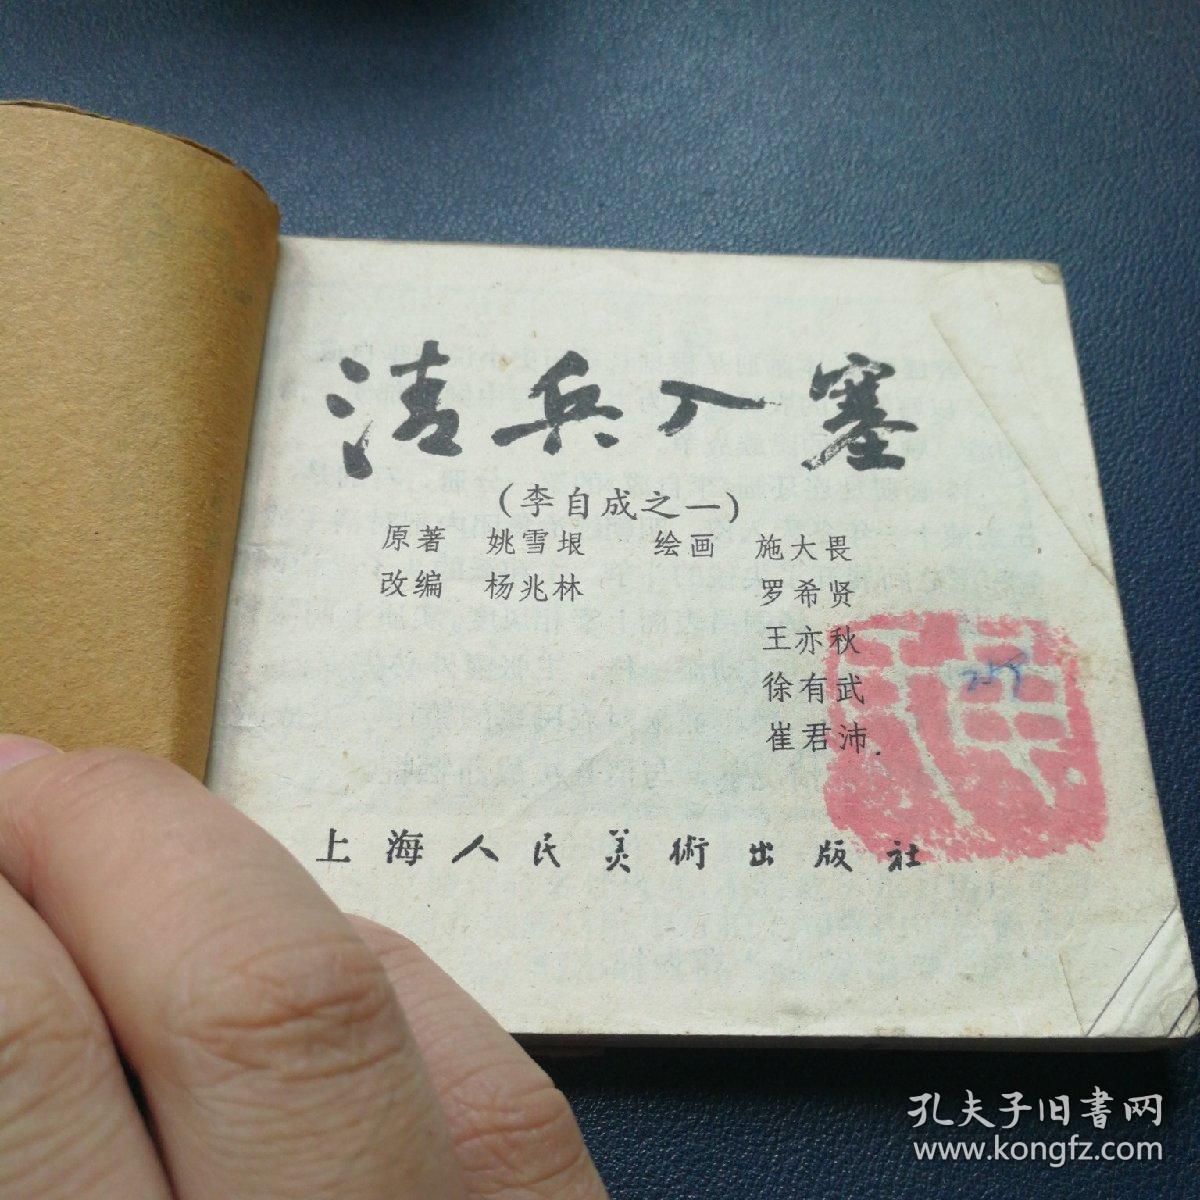 清兵入塞
(李自成之一)
原著 姚雪垠 绘画 施大畏
改编 杨兆林 罗希贤
王亦秋
徐有武
崔君沛
上海人民美術出版社
孔夫子旧書网
www.kongfz.com